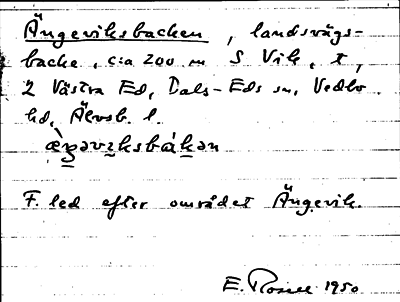 Ängeviksbacken, landsvägs-
backe, c:a 200 m S Vik, t,
2 Västra Ed, Dals-Eds sn, Vedbo
hd, Älvsb. l.
F. led efter området Ängevik.
E. 1950